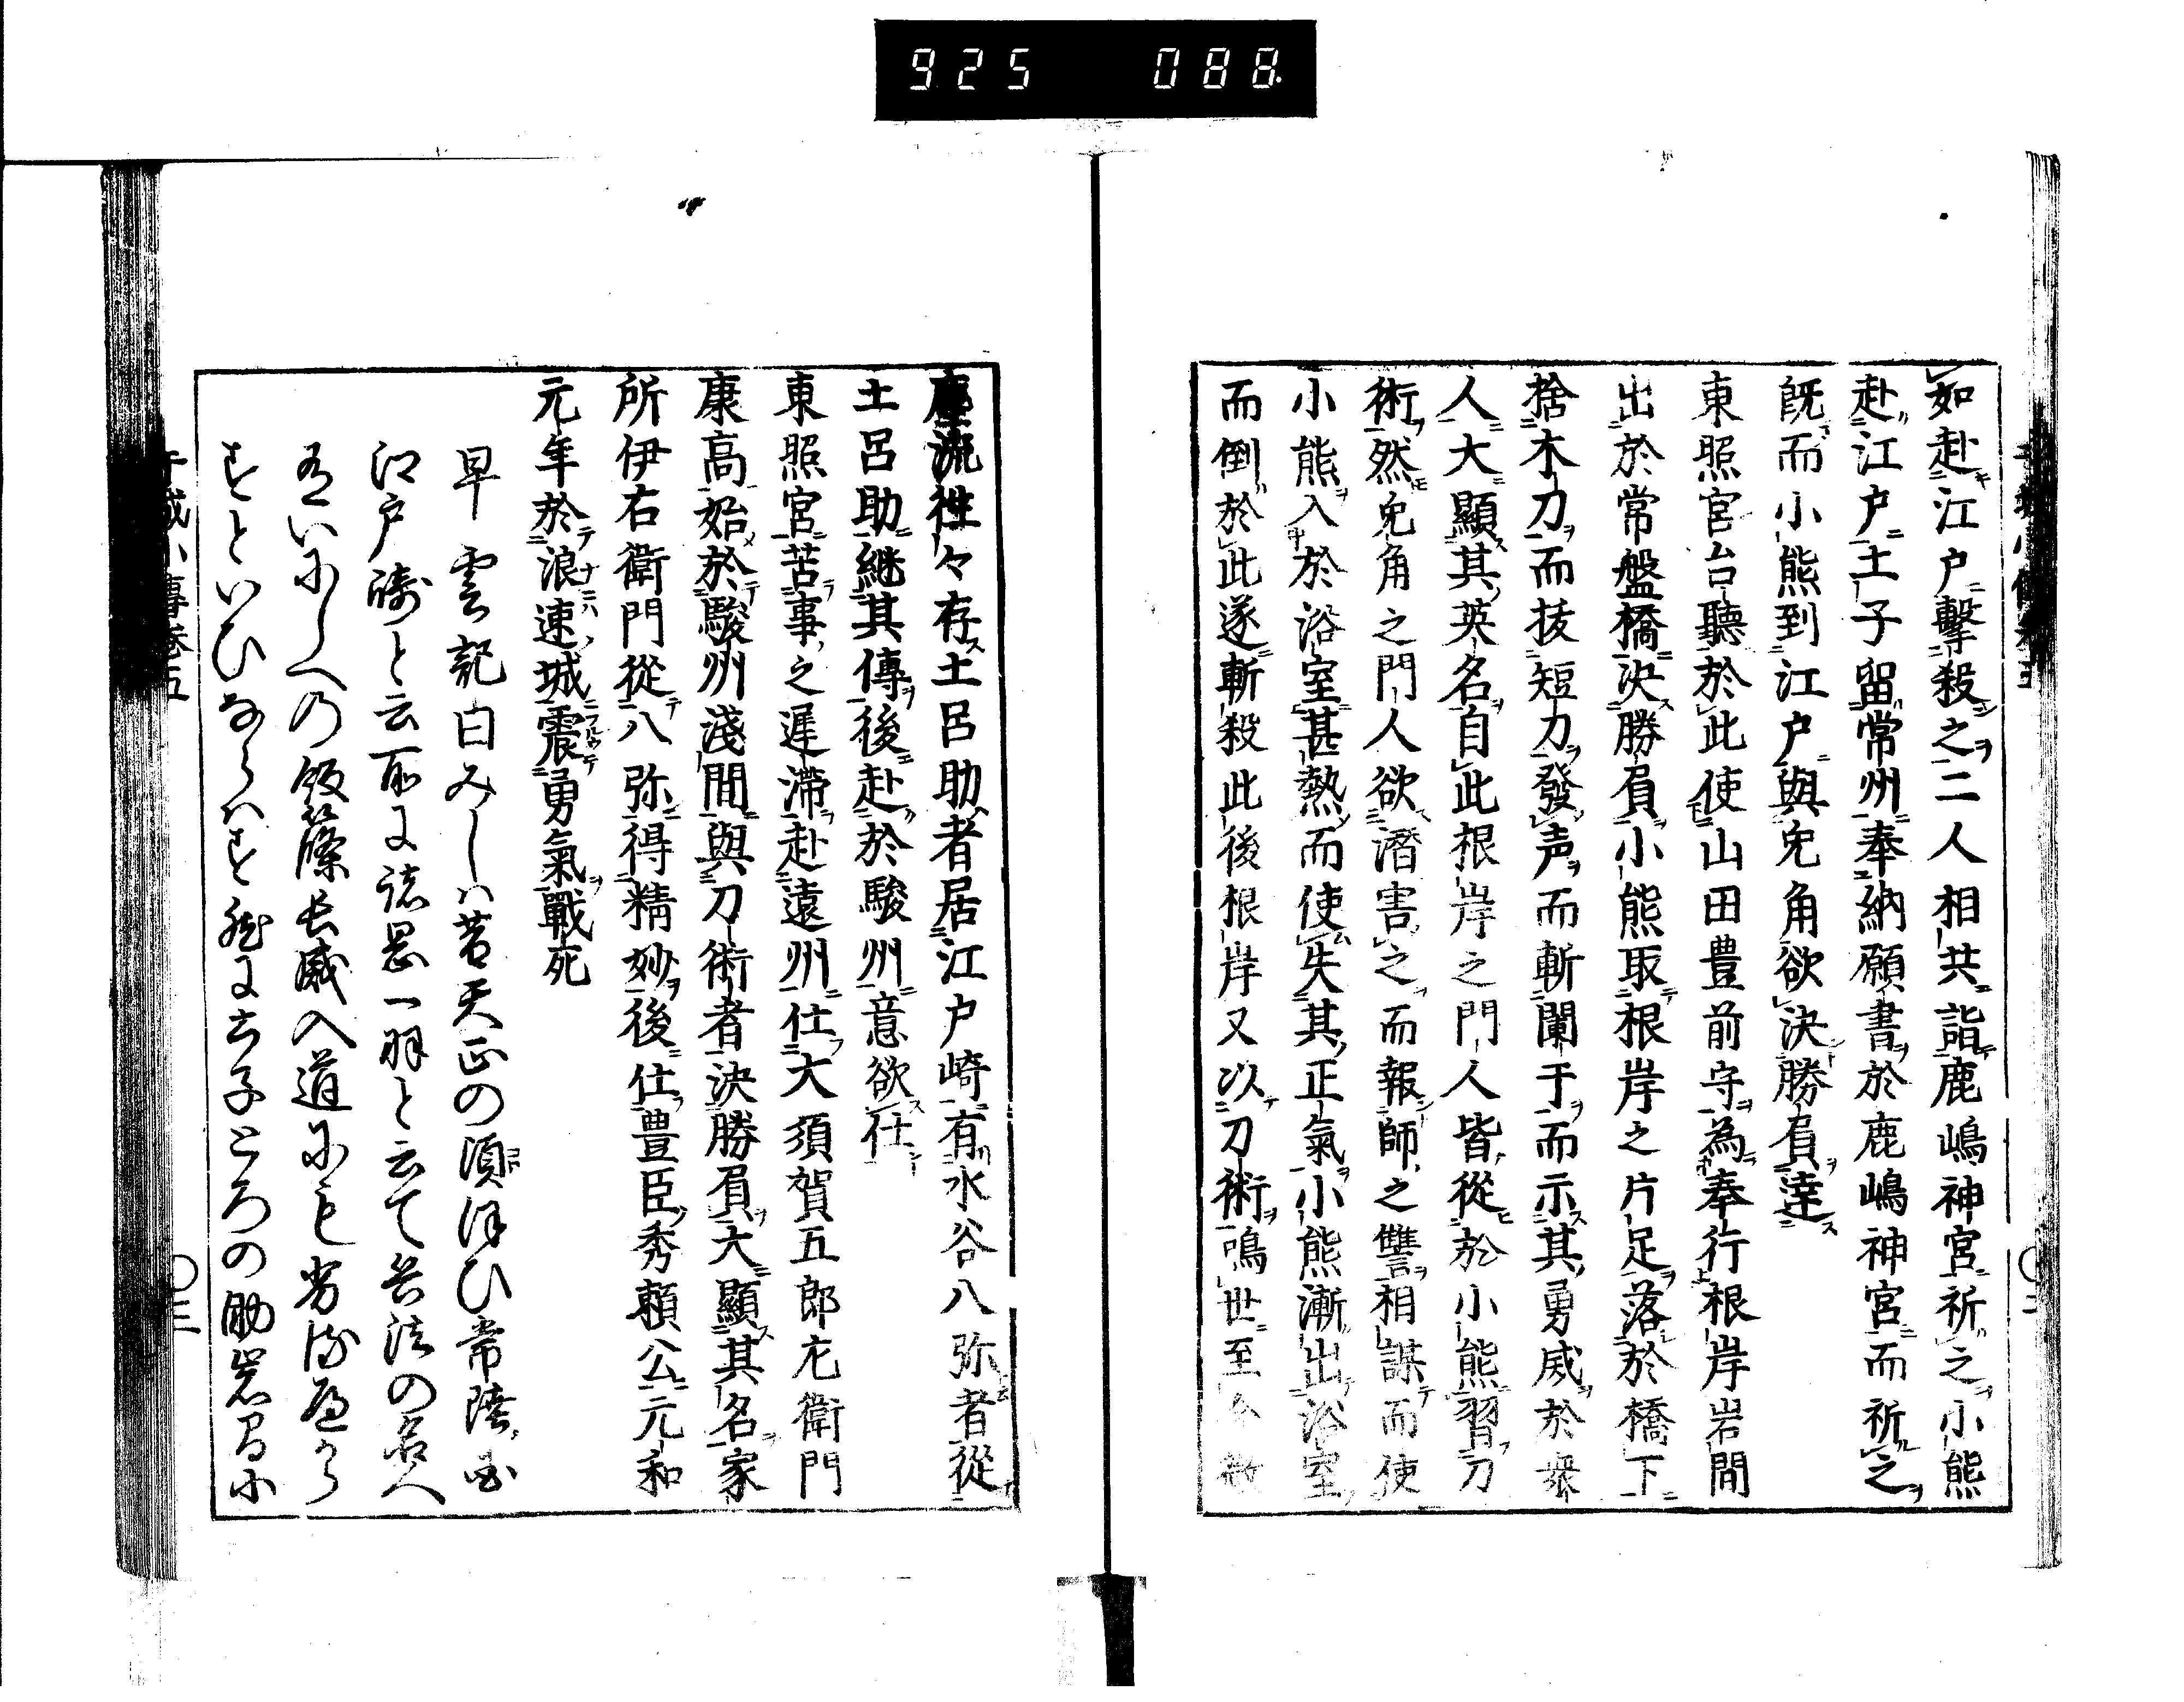 925 088
如赴江戸擊殺之二人相共詣鹿嶋神宮祈之小熊
赴江戸土子留常州奉納願書於鹿嶋神宮而祈之
既而小熊到江戸與兔角欲決勝負達
東照宮台聽於此使山田豊前守為奉行根岸岩間
出於常盤橋決勝負小熊取根岸之片足落於橋下
捨木刀而抜短刀發声而斬闌干而示其勇威於衆
人大顯其英名自此根岸之門人皆從於小熊習刀
術然兔角之門人欲潛害之而報師之讐相謀而使
小熊入於浴室甚熱而使失其正氣小熊漸出浴室
而倒於此遂斬殺此後根岸又以刀術鳴世至今微
塵流往々存土呂助者居江戸崎有水谷八弥者從
土呂助継其傳後赴於駿州意欲仕
東照宮苦事之遅滞赴遠州仕大須賀五郎左衛門
康高始於駿州淺間與刀術者決勝負大顯其名家
所伊右衛門從八弥得精妙後仕豊臣秀頼公元和
元年於浪速城震勇氣戰死
早雲記曰みしハ昔天正の頃ほひ常陸国
江戸崎と云所に諸岡一羽と云て兵法の名人
有いにしへの飯篠長威入道にも劣るへから
すといひならハす然に土子とろの助岩間小
干城小傳巻五
〇三